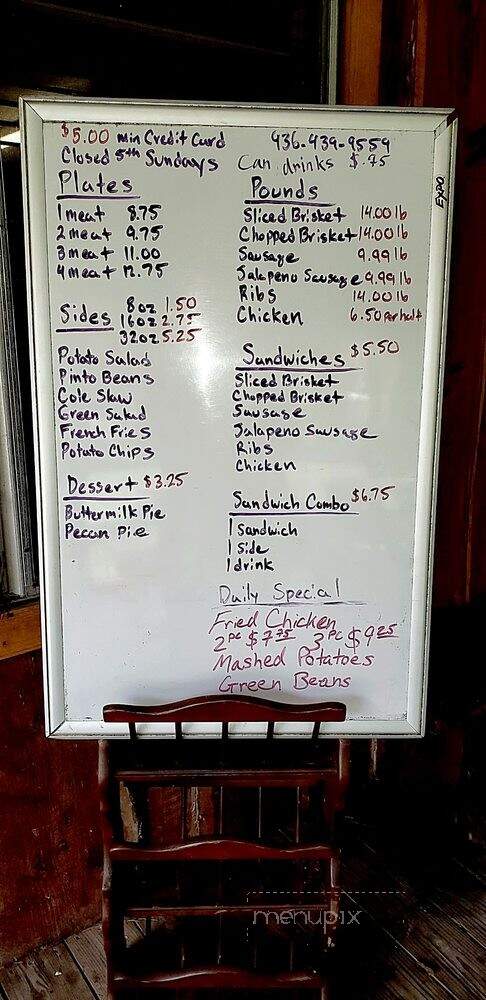 $5.00 min Credit Card
Closed 5th Sundays
936-439-9559
Can drinks $.75
EXPO
Plates
1 meat 8.75
2 meat 9.75
3 meat 11.00
4 meat 12.75
Sides
8oz 1.50
16oz 2.75
32oz 5.25
Potato Salad
Pinto Beans
Cole Slaw
Green Salad
French Fries
Potato Chips
Dessert $3.25
Buttermilk Pie
Pecan Pie
Pounds
Sliced Brisket 14.00 lb
Chopped Brisket 14.00 lb
Sausage 9.99 lb
Jalapeno Sausage 9.99 lb
Ribs 14.00 lb
Chicken 6.50 Per half
Sandwiches $5.50
Sliced Brisket
Chopped Brisket
Sausage
Jalapeno Sausage
Ribs
Chicken
Sandwich Combo $6.75
1 Sandwich
1 Side
1 drink
Daily Special
Fried Chicken
2 pc $7.75 3 pc $9.25
Mashed Potatoes
Green Beans
menupix